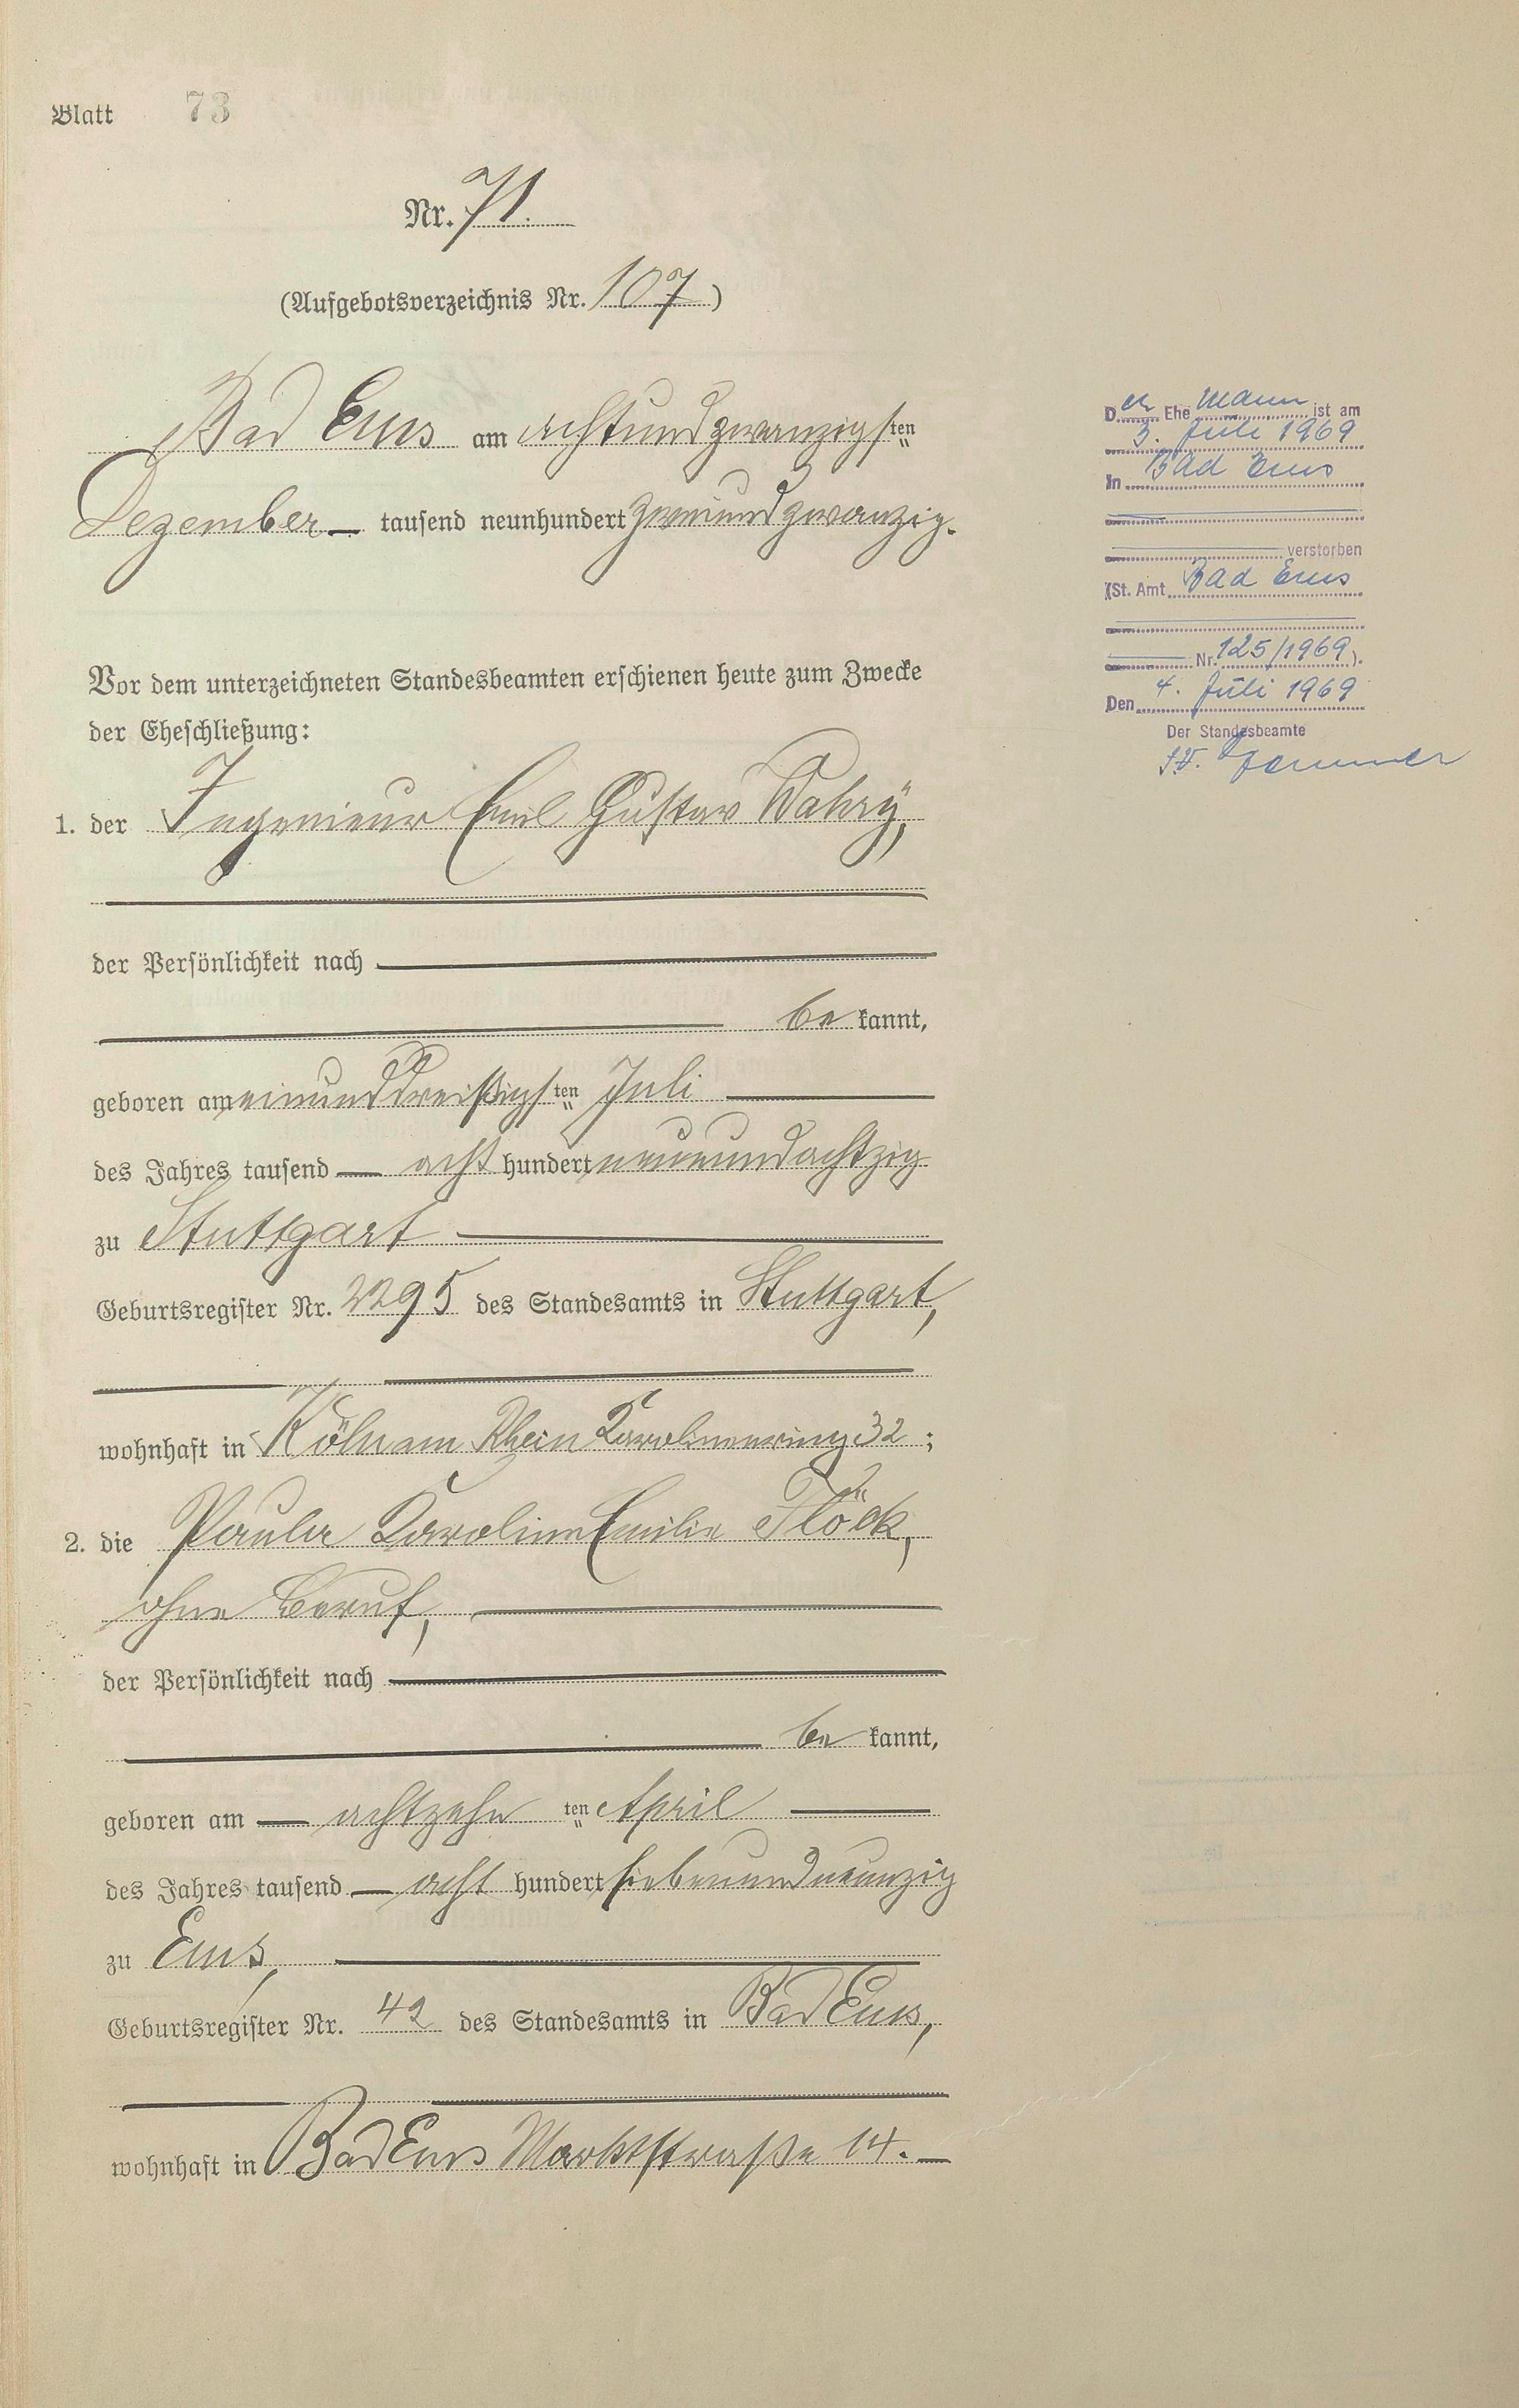 Blatt 73
Nr. 71.
(Aufgebotsverzeichnis Nr. 107)
Bad Ems am achtundzwanzigsten
Dezember tausend neunhundert zweiundzwanzig.
Vor dem unterzeichneten Standesbeamten erschienen heute zum Zwecke
der Eheschließung:
1. der Ingenieur Emil Gustav
der Persönlichkeit nach
be kannt,
geboren am einunddreißigsten Juli
des Jahres tausend acht hundert neunundachtzig
zu Stuttgart
Geburtsregister Nr. 2295 des Standesamts in Stuttgart,
wohnhaft in Köln am Rhein Karolinenring 32;
2. die Paula Karoline Emilie Flöck,
ohne Beruf,
der Persönlichkeit nach
be kannt,
geboren am achtzehn ten April
des Jahres tausend acht hundert siebenundneunzig
zu Ems,
Geburtsregister Nr. 42 des Standesamts in Bad Ems,
wohnhaft in Bad Ems Marktstraße 14.
Der Ehe Mann ist am
3. Juli 1969
in Bad Ems
verstorben
(St. Amt Bad Ems
Nr. 125/1969).
Den 4. Juli 1969
Der Standesbeamte
I.V.